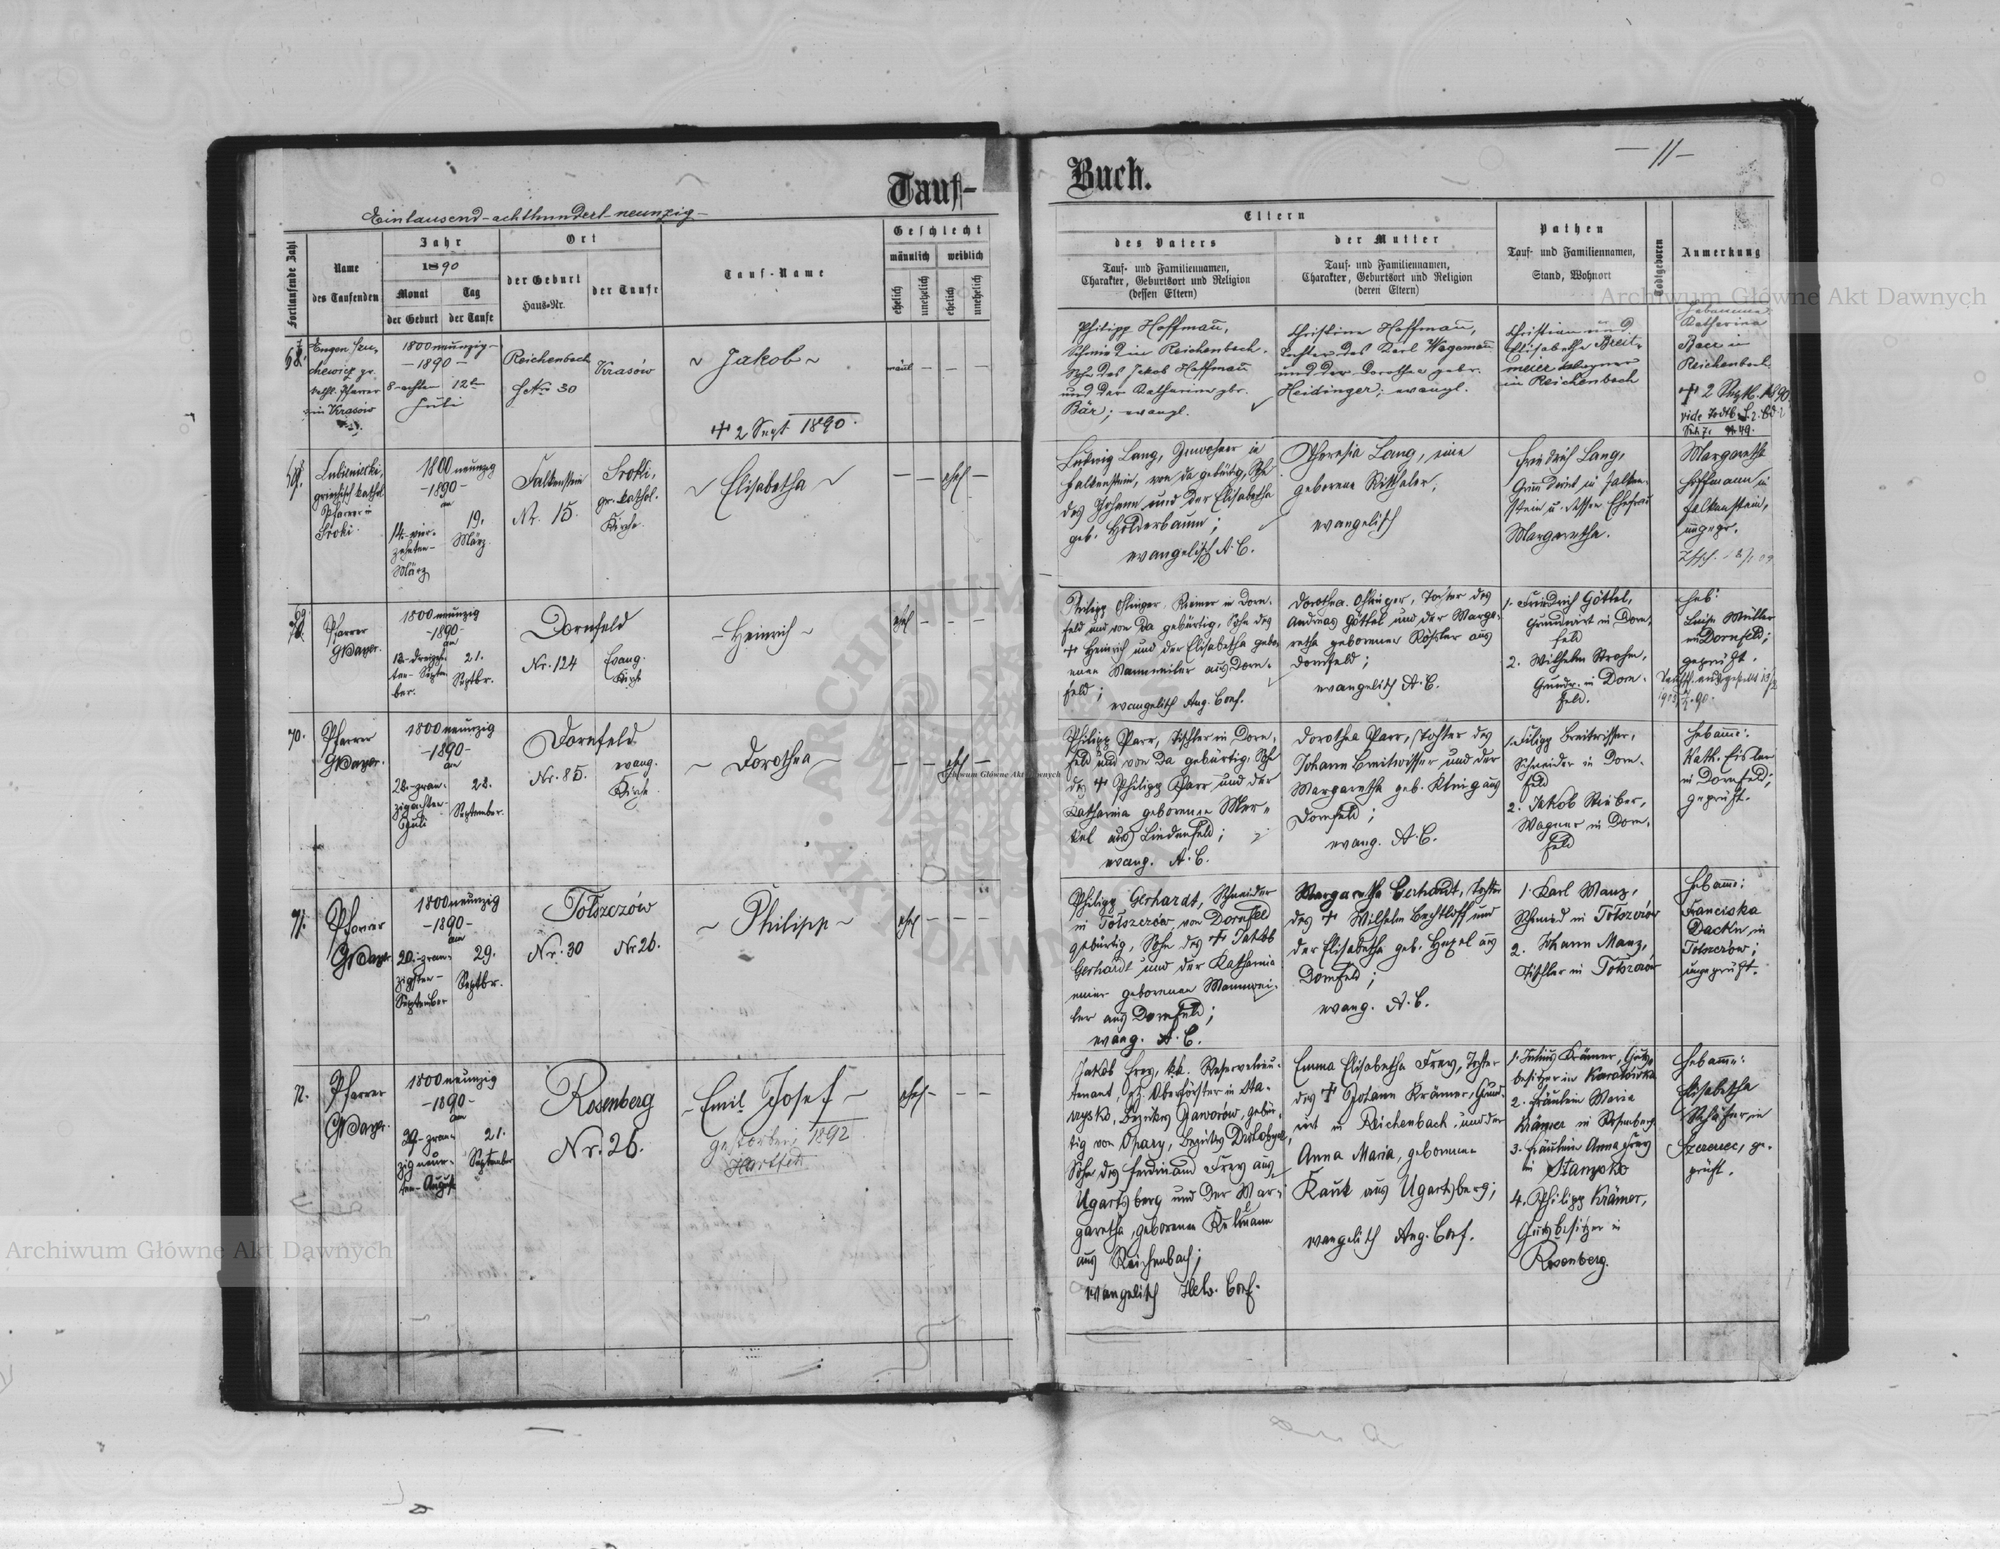 — 11 —
Tauf-
Buch.
Eintausend-achthundert-neunzig-
Fortlaufende Zahl
Name
des Taufenden
Jahr
1890
Monat
Tag
der Geburt
der Taufe
Ort
der Geburt
Haus-Nr.
der Taufe
Tauf-Name
Geschlecht
männlich
weiblich
ehelich
unehelich
ehelich
unehelich
Eltern
des Vaters
Tauf- und Familiennamen,
Charakter, Geburtsort und Religion
(dessen Eltern)
der Mutter
Tauf- und Familiennamen,
Charakter, Geburtsort und Religion
(deren Eltern)
Pathen
Tauf- und Familiennamen,
Stand, Wohnort
Todtgeboren
Anmerkung
Eugen
gr.
Pfarrer
in Krasów
1800neunzig-
-1890-
8-achten 12te
Juli
Reichenbach
HNro 30
Krasów
~ Jakob ~
+ 2 Sept 1890.
— — —
Philipp Hoffmann,
Schmied in Reichenbach.
Sohn des Jakob Hoffmann
und der Katharina gbr.
Bär; evangl.
Christine Hoffmann,
Tochter des Karl Wagemann
und der Dorothea gebr.
Heidinger; evangl.
Christian und
Elisabetha Breit-
meier
in Reichenbach
Hebamme
Katharina
Baer in
Reichenbach
+ 2 Sept. 1890
vide Todtb.
49.
Lubiniecki,
griechisch kathol.
Pfarrer in
Sroki.
1800neunzig
-1890-
am
14.-vier-
zehnten-
März
19.
März
Falkenstein
Nr. 15.
Sroki,
gr. kathol.
Kirche.
~ Elisabetha ~
— — ehel —
Ludwig Lang, Inwohner in
Falkenstein, von da gebürtig, Sohn
des Johann und der Elisabetha
geb. Holderbaum;
evangelisch A. C.
Theresia Lang, eine
geborene Witthaler,
evangelisch
Friedrich Lang,
Grundwirt in Falken-
stein u. dessen Ehefrau
Margaretha.
Margareth
Hoffmann in
Falkenstein,
ungepr.
69.
Pfarrer
GMayer.
1800neunzig
-1890-
am
13.-dreizehn-
ten- Septem-
ber.
21.
Septbr.
Dornfeld
Nr. 124
Evang.
Kirche
- Heinrich ~
ehel — — —
Philipp Ohlinger, Riemer in Dorn-
feld und von da gebürtig, Sohn des
+ Heinrich und der Elisabetha gebo-
renen Mannweiler aus Dorn-
feld;
evangelisch Aug. Conf.
Dorothea Ohlinger, Tochter des
Andreas Göttel und der Marga-
retha geborener Rößler aus
Dornfeld;
evangelisch A. C.
1. Friedrich Göttel,
Grundwirt in Dorn-
feld
2. Wilhelm Strohm,
Grundw. in Dorn-
feld.
Heb:
Luise Müller
in Dornfeld;
geprüft.
70.
Pfarrer
GMayer.
1800neunzig
-1890-
am
28.-zwan-
zigachten-
Juli
28.
September.
Dornfeld
Nr. 85.
evang.
Kirche
~ Dorothea ~
— — ehel —
Philipp Parr, Tischler in Dorn-
feld und von da gebürtig, Sohn
des + Philipp Parr und der
Katharina geborenen Mer-
kel aus Lindenfeld;
evang. A. C.
Dorothea Parr, Tochter des
Johann Breitwisser und der
Margaretha geb. König aus
Dornfeld;
evang. A. C.
1. Filipp Breitwisser,
Schneider in Dorn-
feld
2. Jakob Stieber,
Wagner in Dorn-
feld
Hebamme:
Kath. Eisler
in Dornfeld;
geprüft.
71.
Pfarrer
GMayer
1800neunzig
-1890-
am
20.-zwan-
zigsten-
September
29.
Septbr.
Tołszczów
Nr. 30
Nr 26.
~ Philipp ~
ehel — — —
Philipp Gerhardt, Schneider
in Tołszczów, von Dornfeld
gebürtig, Sohn des + Jakob
Gerhardt und der Katharina
einer geborenen Mannwei-
ler aus Dornfeld;
evang. A. C.
Margaretha Gerhardt, Tochter
des + Wilhelm Bechtloff und
der Elisabetha geb. Hexel aus
Dornfeld;
evang. A. C.
1. Karl Manz,
Schmied in Tołszczów
2. Johann Manz,
Tischler in Tołszczów
Hebamme:
Franciska
in
Tołszczów;
ungeprüft.
72.
Pfarrer
GMayer.
1800neunzig
-1890-
am
29.-zwan-
zigneun-
ten-August
21.
September
Rosenberg
Nr. 26.
~ Emil Josef ~
gestorben 1892
ehel — — —
Jakob Frey, kk. Reservelieu-
tenant, Oberförster in Sta-
rzyska, Bezirkes Jaworów, gebür-
tig von Opary, Bezirkes Drohobycz,
Sohn des Ferdinand Frey aus
Ugartsberg und der Mar-
garetha, geborenen
aus Reichenbach;
evangelisch Helv. Conf.
Emma Elisabetha Frey, Tochter
des + Johann Krämer, Grund-
wirt in Reichenbach, und der
Anna Maria, geborenen
Kauk aus Ugartsberg;
evangelisch Aug. Conf.
1. Julius Krämer, Guts-
besitzer in
2. Fräulein Maria
Krämer in Rosenberg
3. Fräulein Anna Frey
in
4. Philipp Krämer,
Gutsbesitzer in
Rosenberg.
Hebamme:
Elisabetha
Schäfer in
Szczerec, ge-
prüft.
Archiwum Główne Akt Dawnych
Archiwum Główne Akt Dawnych
Archiwum Główne Akt Dawnych